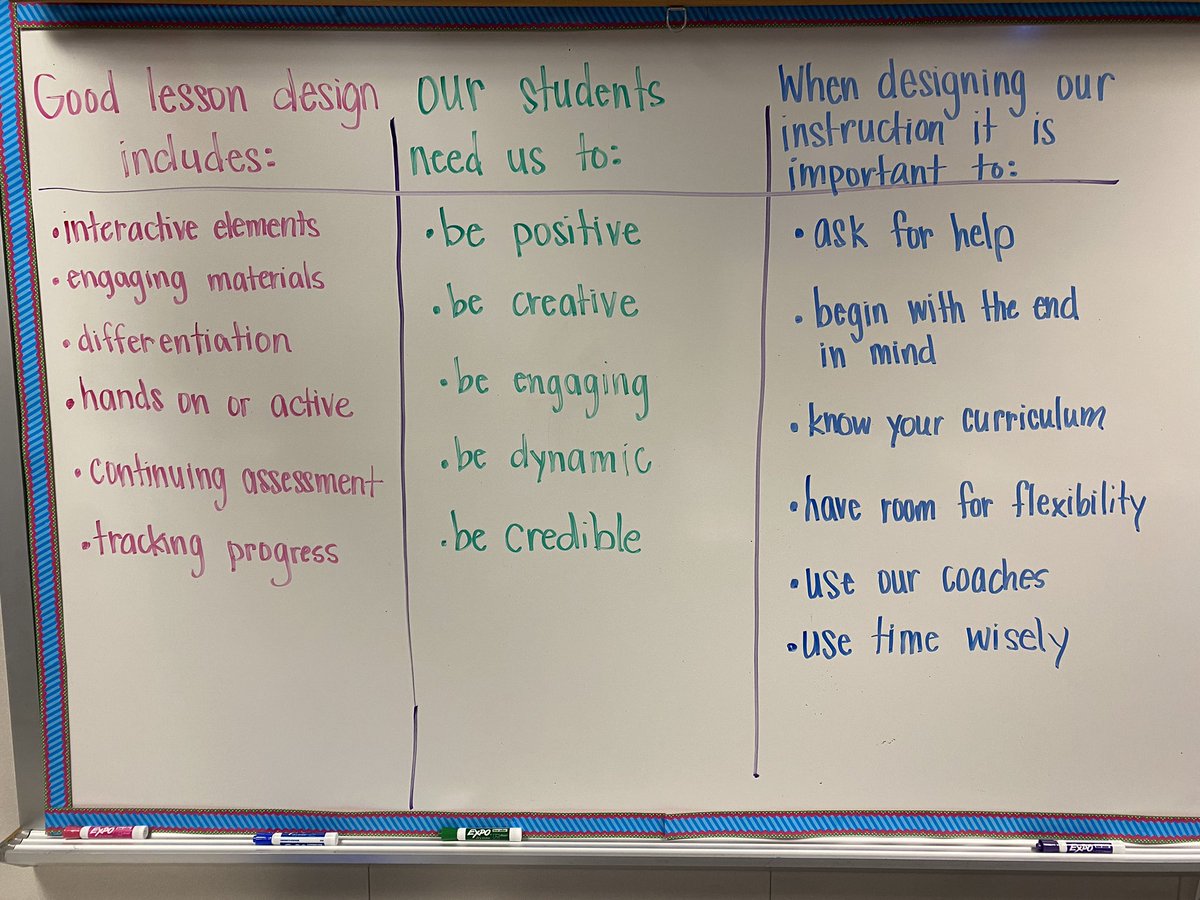 Good lesson design
includes:
• interactive elements
• engaging materials
• differentiation
• hands on or active
• continuing assessment
• tracking progress
our students
need us to:
• be positive
• be creative
• be engaging
• be dynamic
• be credible
When designing our
instruction it is
important to:
• ask for help
• begin with the end
in mind
• know your curriculum
• have room for flexibility
• use our coaches
• use time wisely
EXPO
EXPO
EXPO